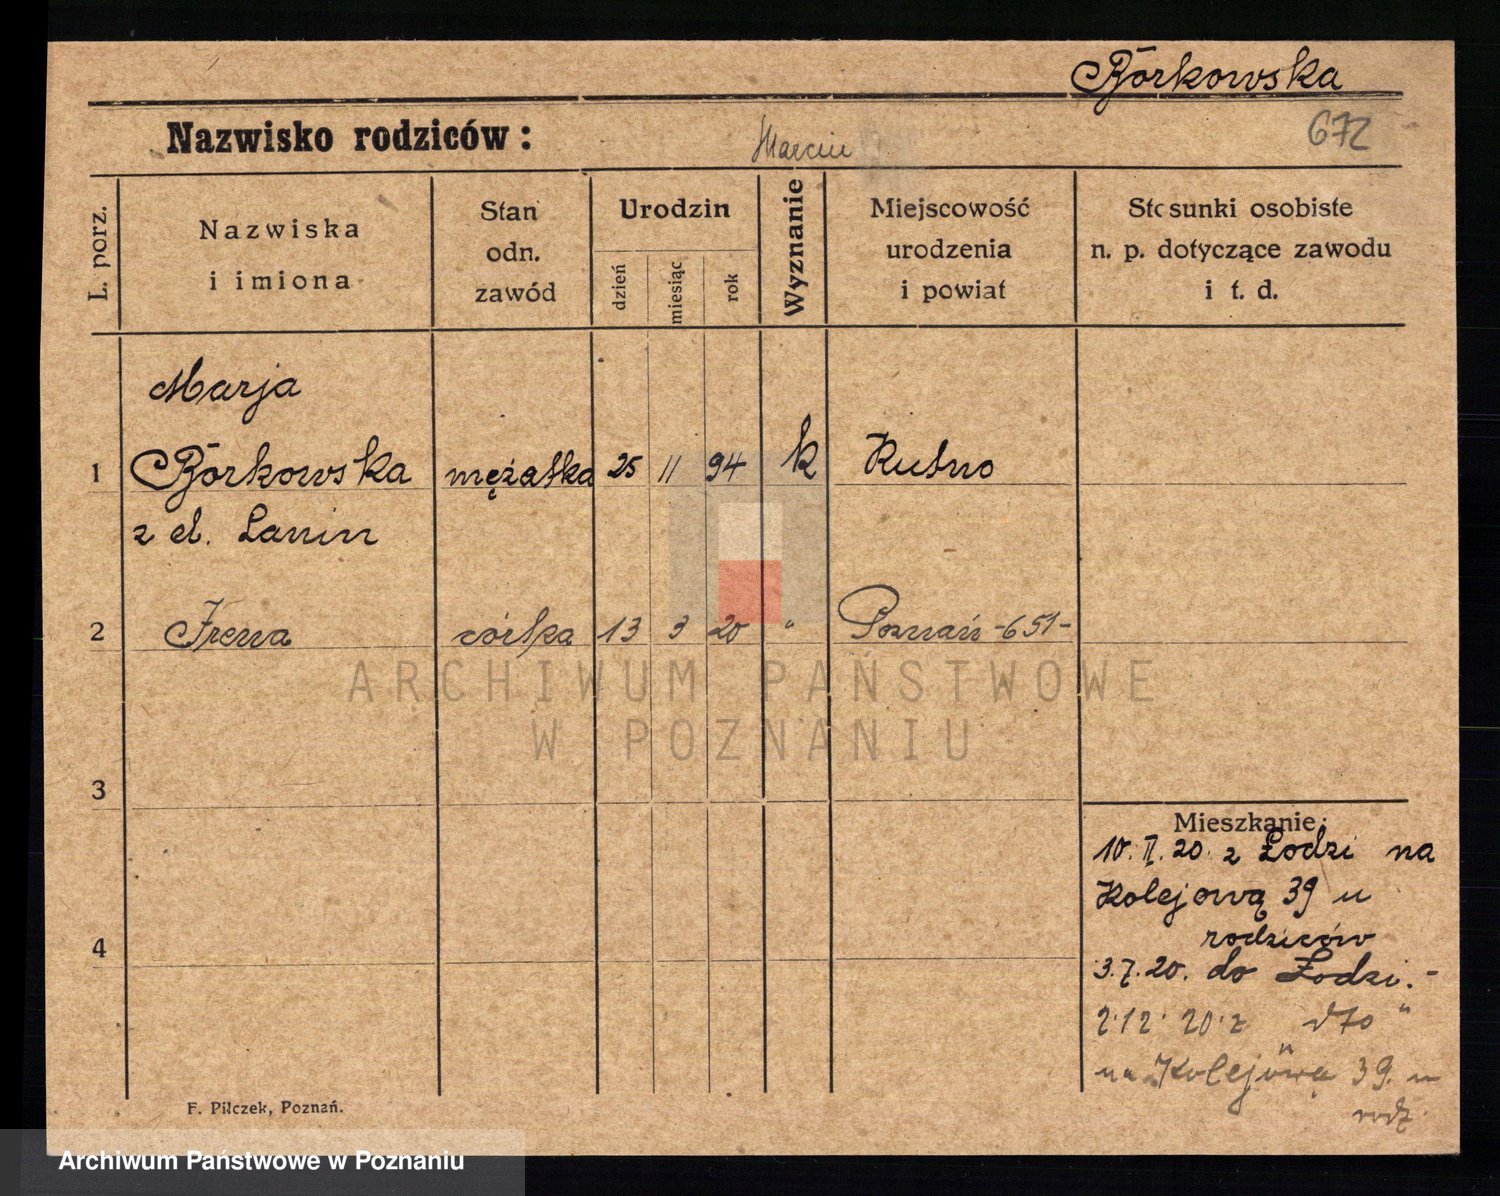 Borkowska
Nazwisko rodziców:
Marcin
672
L. porz.
Nazwiska
i imiona
Stan
odn.
zawód
Urodzin
dzień
miesiąc
rok
Wyznanie
Miejscowość
urodzenia
i powiat
Stosunki osobiste
n. p. dotyczące zawodu
i t. d.
Marja
1 Borkowska mężatka 25 11 94 k Kutno
z d. Lanin
2 Irena córka 13 3 20 " Poznań -651-
ARCHIWUM PAŃSTWOWE
W POZNANIU
3
4
Mieszkanie:
10. II. 20. z Łodzi na
Kolejową 39 u
rodziców
3.7.20. do Łodzi.-
2.12.20. z dto "
na Kolejową 39. u
rodz.
F. Pilczek, Poznań.
Archiwum Państwowe w Poznaniu